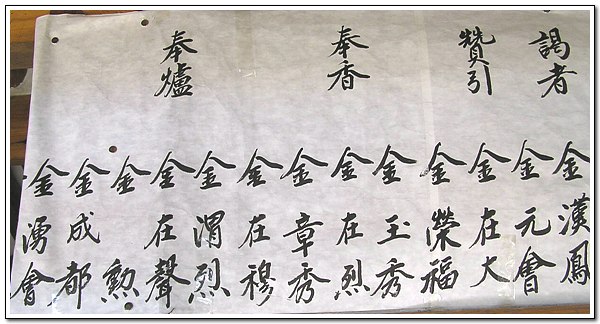 謁者
贊引
奉香
奉爐
金漢鳳
金元會
金在大
金榮福
金玉秀
金在烈
金章秀
金在穆
金渭烈
金在聲
金勲
金成都
金湧會